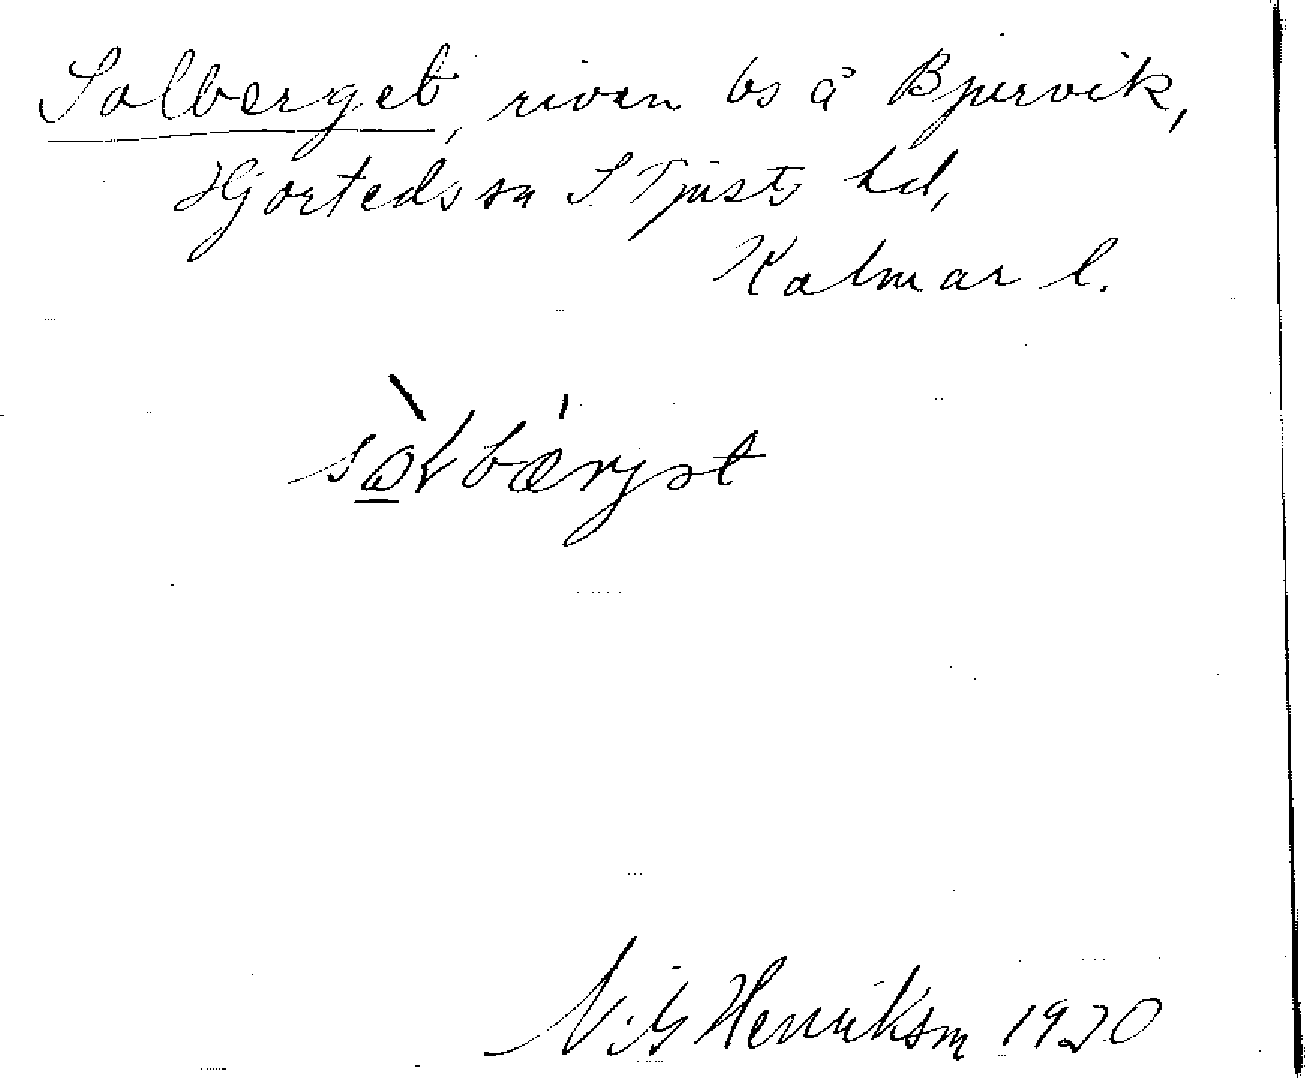 Solberget, riven bs å Bjurvik,
Hjorteds sn S Tjusts hd,
Kalmar l.
Henriksson 1920